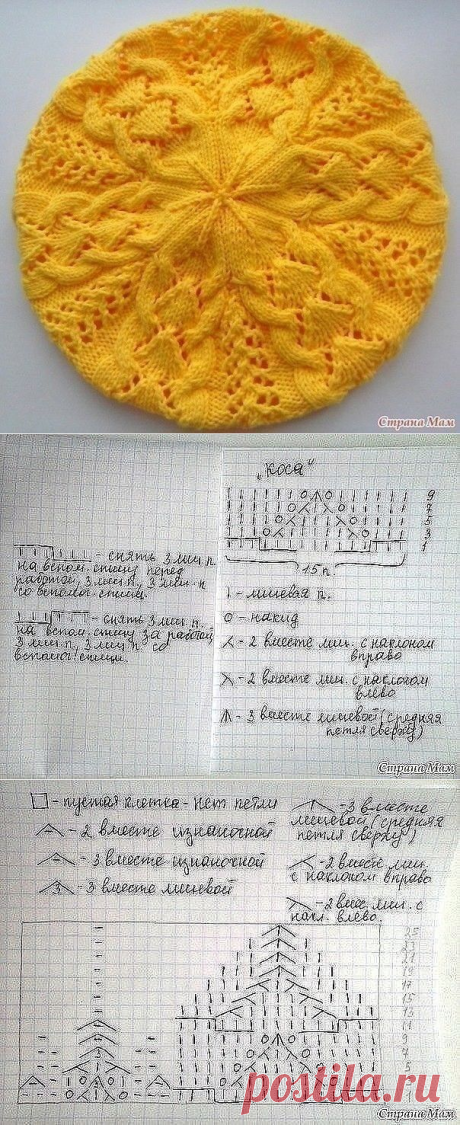 Страна Мам
„Коса"
9
7
5
3
1
15 п.
- снять 3 лиц.п.
на вспом. спицу перед
работой, 3 лиц.п., 3 лиц.п
со вспомог. спицы.
- снять 3 лиц.п.
на вспом. спицу за работой
3 лиц.п, 3 лиц.п со
вспомог. спицы
- лицевая п.
- накид
- 2 вместе лиц. с наклоном
вправо
- 2 вместе лиц. с наклоном
влево
- 3 вместе лицевой (средняя
петля сверху)
Страна Мам
- пустая клетка - нет петли
- 2 вместе изнаночной
- 3 вместе изнаночной
- 3 вместе лицевой
- 3 вместе
лицевой (средняя
петля сверху)
- 2 вместе лиц.
с наклоном вправо
- 2 вмес. лиц. с
накл. влево.
25
23
21
19
17
15
13
11
9
7
5
postila.ru
Страна Мам